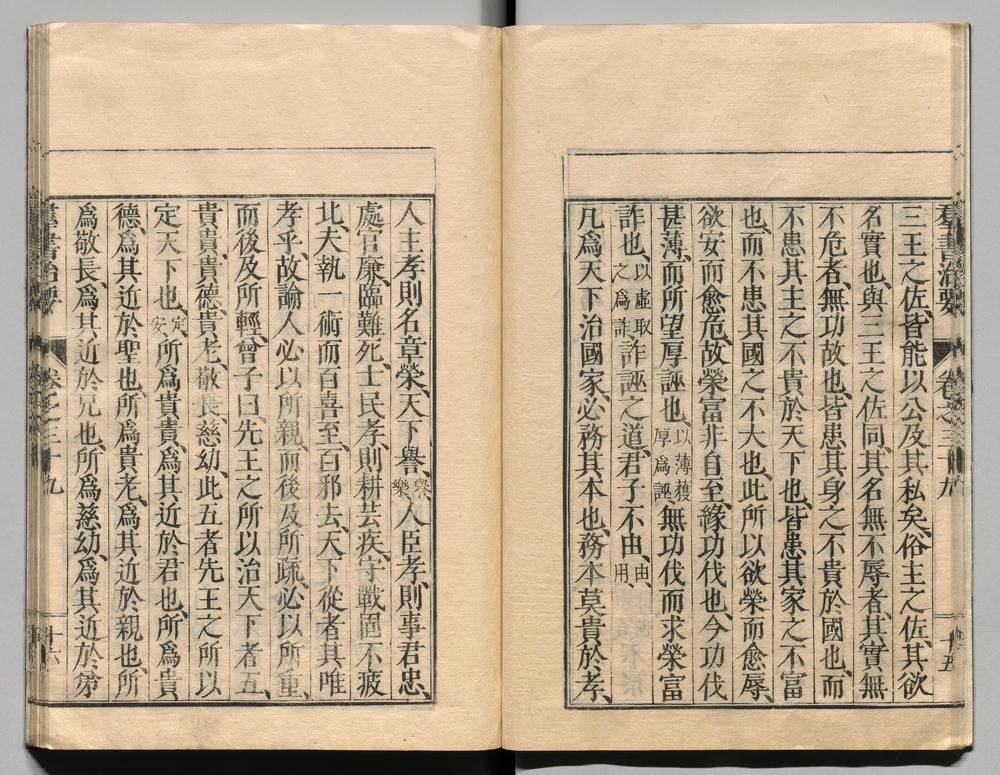 羣書治要 卷之三十九 十五
三王之佐、皆能以公及其私矣、俗主之佐、其欲
名實也、與三王之佐同、其名無不辱者、其實無
不危者、無功故也、皆患其身之不貴於國也、而
不患其主之不貴於天下也、皆患其家之不富
也、而不患其國之不大也、此所以欲榮而愈辱、
欲安而愈危、故榮富非自至、緣功伐也、今功伐
甚薄、而所望厚誣也、以薄獲厚爲誣、無功伐而求榮富
詐也、以虛取之爲詐、詐誣之道、君子不由、由用、
凡爲天下治國家、必務其本也、務本莫貴於孝、
人主孝則名章榮、天下譽、譽樂、人臣孝、則事君忠、
處官廉、臨難死、士民孝、則耕芸疾、守戰固不疲
北、夫執一術而百喜至、百邪去、天下從者其唯
孝乎、故論人必以所親、而後及所疏、必以所重、
而後及所輕、曾子曰先王之所以治天下者五、
貴貴、貴德、貴老、敬長、慈幼、此五者先王之所以
定天下也、定安、所爲貴貴、爲其近於君也、所爲貴
德、爲其近於聖也、所爲貴老、爲其近於親也、所
爲敬長、爲其近於兄也、所爲慈幼、爲其近於弟
羣書治要 卷之三十九 十六